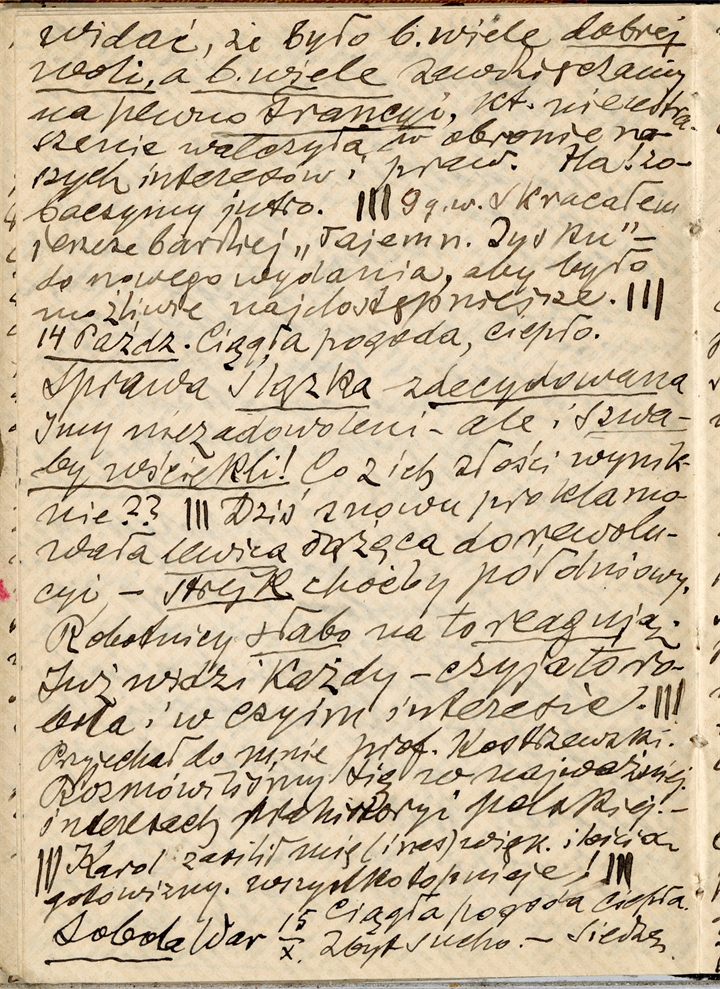 widać, że było b. wiele dobrej
woli, a b. wiele zawdzięczamy
na pewno Francyi, kt. nieustra-
szenie walczyła w obronie na-
szych interesów i praw. Ha! zo-
baczymy jutro. ||| 9 g. w. Skracałem
jeszcze bardziej „Tajemn. Zysku" –
do nowego wydania, aby było
możliwie najdostępniejsze. |||
14 Paźdz. Ciągła pogoda, ciepło.
Sprawa Śląska – zdecydowana
I my niezadowoleni – ale i Szwa-
by wściekli! Co z ich złości wynik-
nie?? ||| Dziś znowu proklamo-
wała lewica dążąca do rewolu-
cyi – strejk choćby południowy.
Robotnicy słabo na to reagują.
Już widzi każdy – czyja to ro-
bota i w czyim interesie. |||
Przyjechał do mnie prof. Kostrzewski.
Rozmówiliśmy się w najważniej.
interesach prahistoryi polskiej. –
||| Karol zasilił mię (i nas) więk. ilością
gotowizny. wszystko topnieje! |||
Sobota War 15/X. Ciągła pogoda ciepła.
Zbyt sucho. – Siedzę